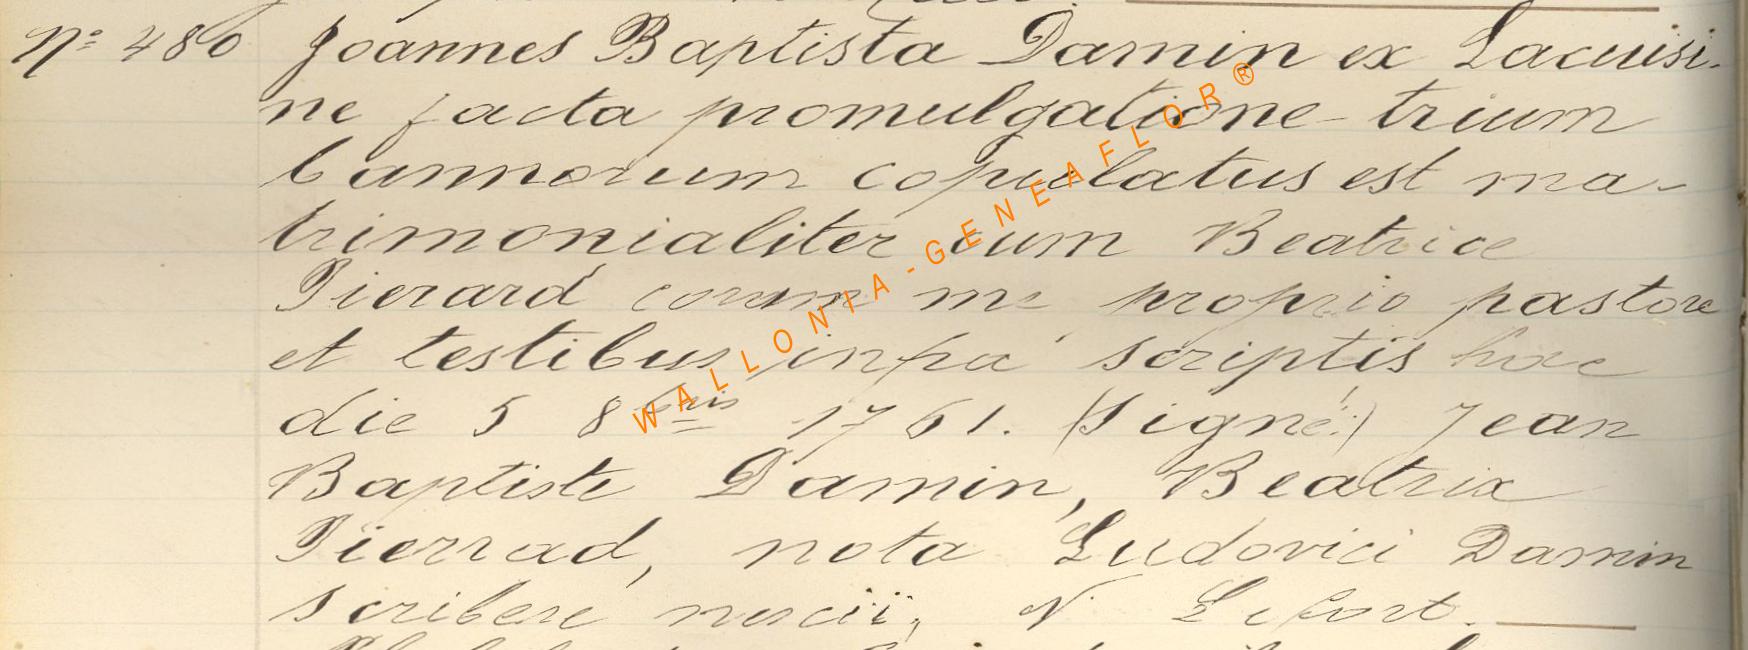 N° 480 Joannes Baptista Damin ex Lacuisi-
ne facta promulgatione trium
bannorum copulatus est ma-
trimonialiter cum Beatrice
Pierard coram me proprio pastore
et testibus infra scriptis hac
die 5 8bris 1761. (Signé:) Jean
Baptiste Damin, Beatrix
Pierrad, nota Ludovici Damin
scribere nescii, N. Lefort.
WALLONIA-GENEAFLOR®